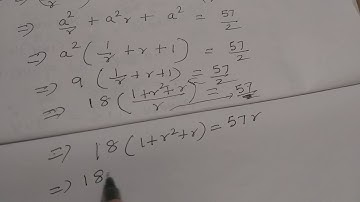 ⇒ a²/r + a²r + a² = 57/2
⇒ a² (1/r + r + 1) = 57/2
⇒ 9 (1/r + r + 1) = 57/2
⇒ 18 (1+r²+r / r) = 57
⇒ 18 (1+r²+r) = 57r
⇒ 18